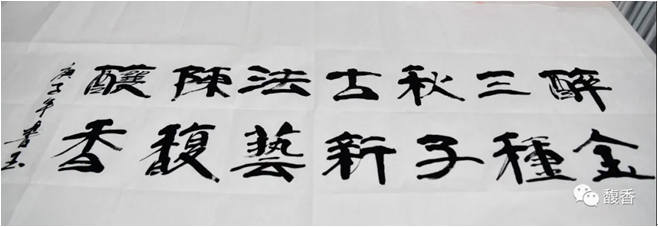 醉三秋古法陳釀
金種子新藝馥香
庚子年
馥香